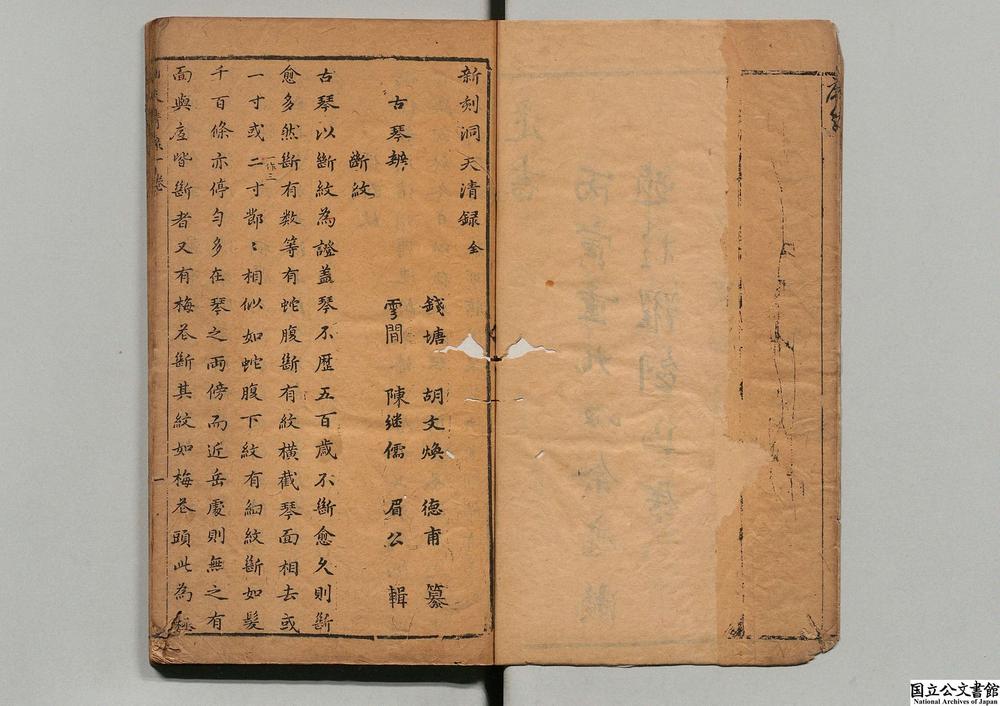 新刻洞天清録全
錢塘 胡文煥 德甫 纂
古琴辨 雲間 陳継儒 眉公 輯
斷紋
古琴以斷紋為證蓋琴不歴五百歳不斷愈久則斷
愈多然斷有数等有蛇腹斷有紋横截琴面相去或
一寸或二寸節〻相似如蛇腹下紋有細紋斷如髮
一作三
千百條亦停勻多在琴之両傍而近岳處則無之有
面與底皆斷者又有梅花斷其紋如梅花頭此為極
一卷
一
国立公文書館
National Archives of Japan